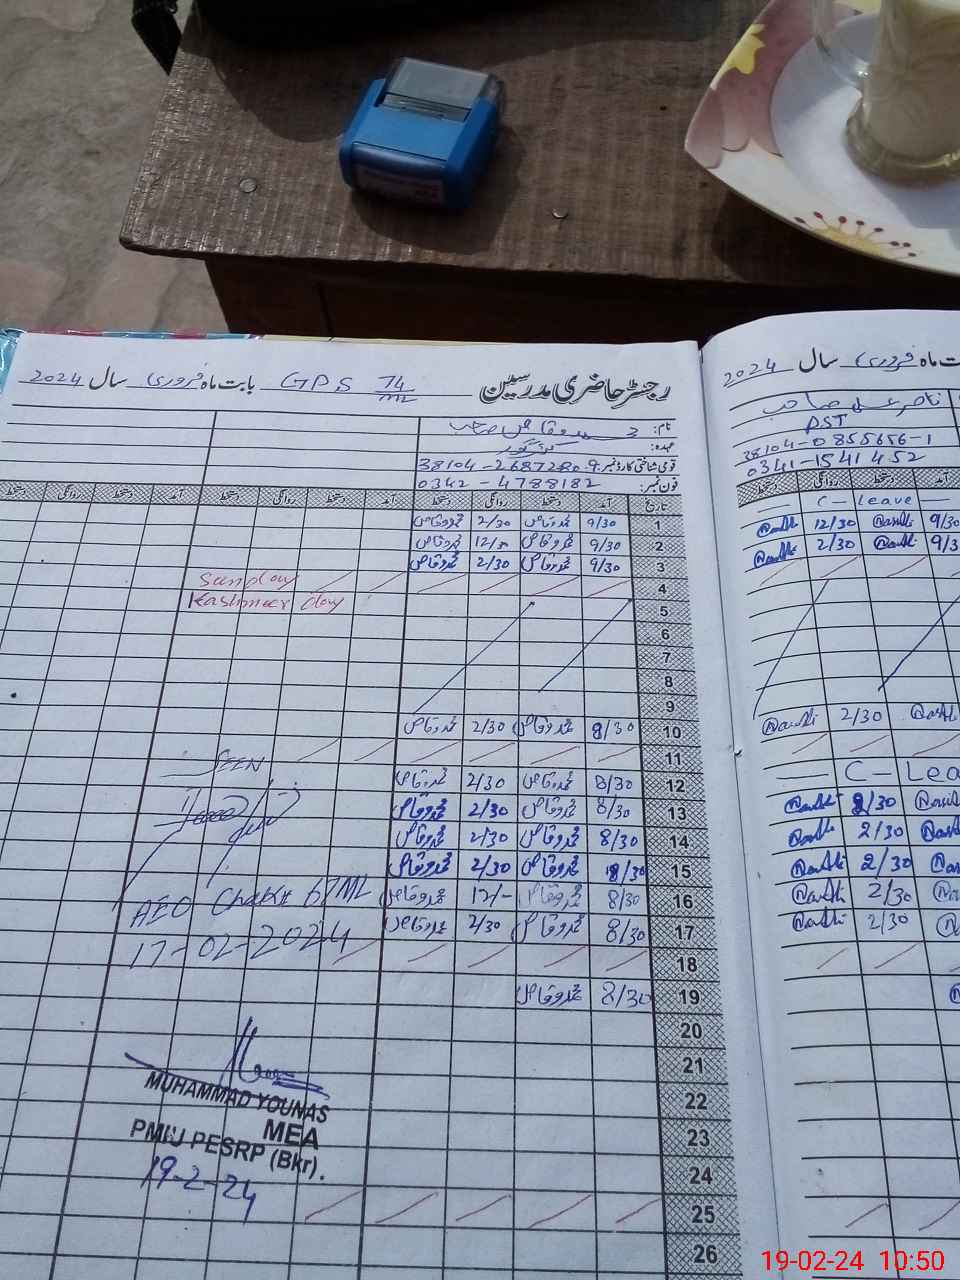 رجسٹر حاضری مدرسین GPS 74 ML بابت ماہ فروری سال 2024
نام: محمد وقاص صاحب
عہدہ:
قومی شناختی کارڈ نمبر: 38104-2687280-9
فون نمبر: 0342-4788182
تاریخ آمد دستخط روانگی دستخط آمد دستخط روانگی دستخط آمد دستخط روانگی دستخط
1 9/30 محمد وقاص 2/30 محمد وقاص
2 9/30 محمد وقاص 12/30 محمد وقاص
3 9/30 محمد وقاص 2/30 محمد وقاص
4 Sunday
5 Kashmeer day
6
7
8
9
10 8/30 محمد وقاص 2/30 محمد وقاص
11
12 8/30 محمد وقاص 2/30 محمد وقاص
13 8/30 محمد وقاص 2/30 محمد وقاص
14 8/30 محمد وقاص 2/30 محمد وقاص
15 8/30 محمد وقاص 2/30 محمد وقاص
16 8/30 محمد وقاص 12/- محمد وقاص
17 8/30 محمد وقاص 2/30 محمد وقاص
18
19 8/30 محمد وقاص
20
21
22
23
24
25
26
SEEN
AEO Chak# 67 ML
17-02-2024
MUHAMMAD YOUNAS
MEA
PMIU PESRP (Bkr).
19-2-24
ت ماہ فروری سال 2024
ناصر علی صاحب
PST
38104-0855656-1
0341-1541452
آمد دستخط روانگی دستخط
C-Leave
9/30 12/30
9/3 2/30
2/30
C-Lea
2/30
2/30
2/30
2/30
2/30
19-02-24 10:50